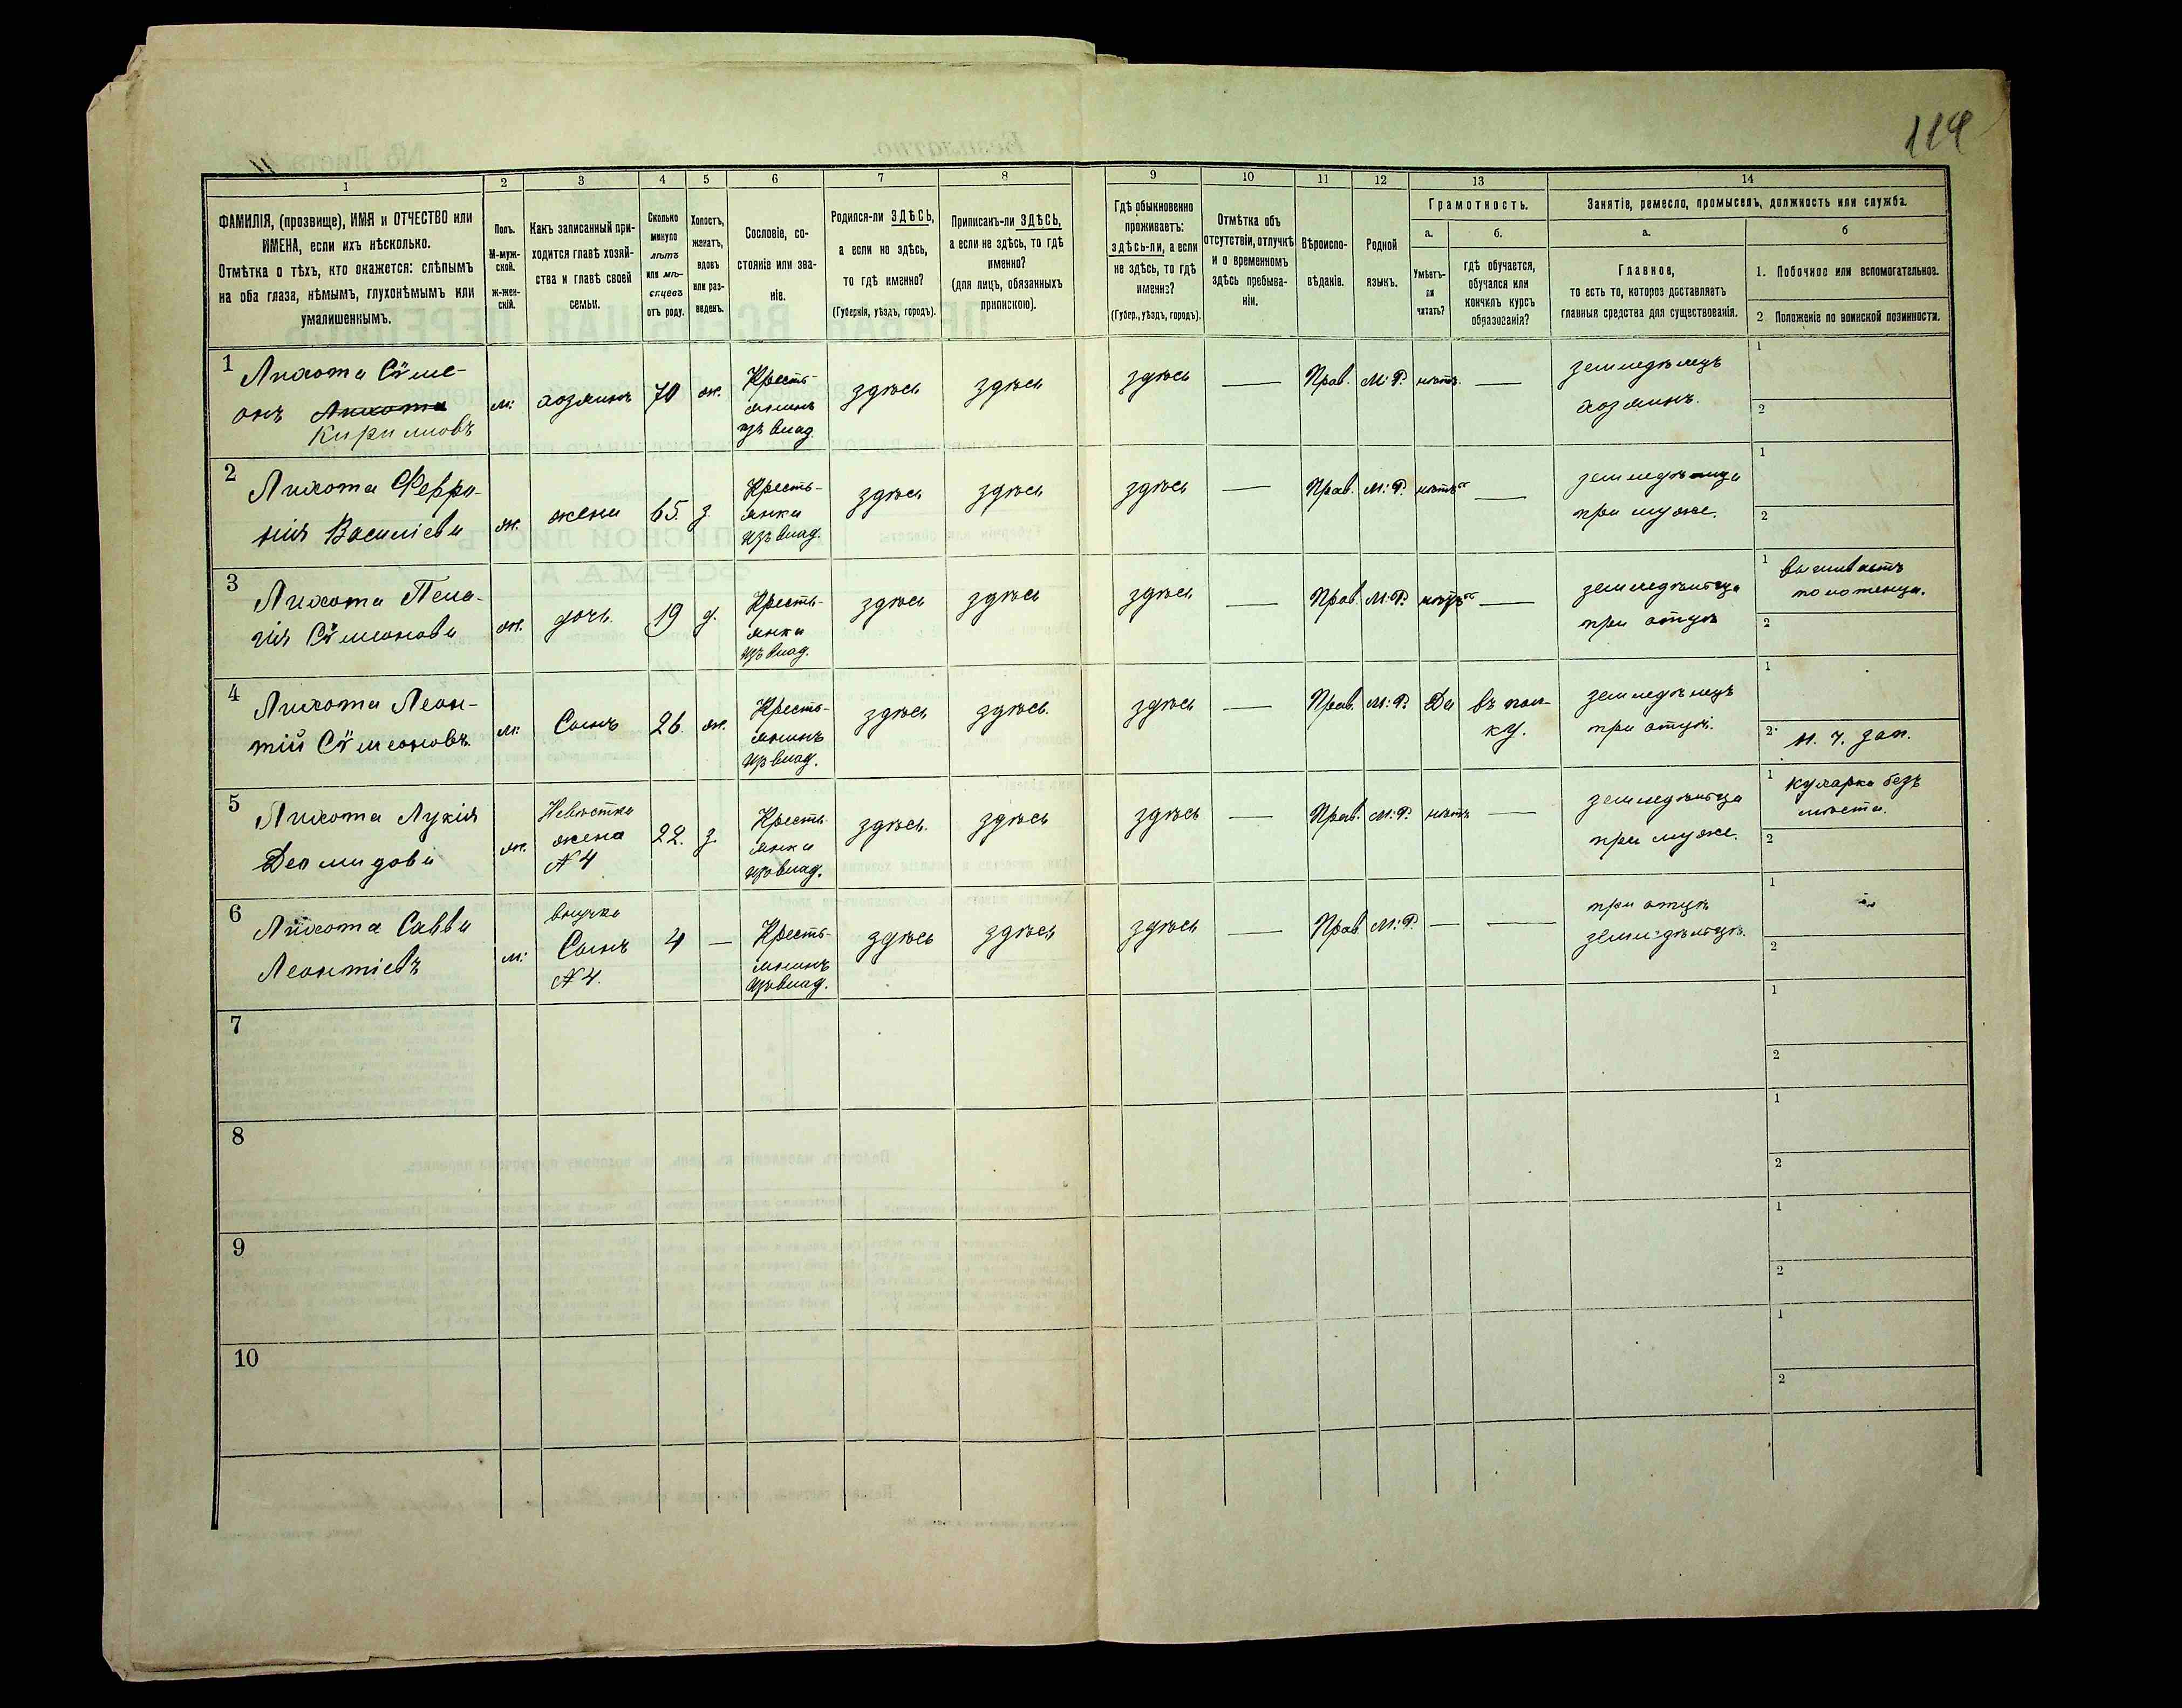 119
1 2 3 4 5 6 7 8 9 10 11 12 13 14
ФАМИЛІЯ, (прозвище), ИМЯ и ОТЧЕСТВО или
ИМЕНА, если ихъ нѣсколько.
Отмѣтка о тѣхъ, кто окажется: слѣпымъ
на оба глаза, нѣмымъ, глухонѣмымъ или
умалишеннымъ.
Полъ.
М-муж-
ской.
Ж-жен-
скій.
Какъ записанный при-
ходится главѣ хозяй-
ства и главѣ своей
семьи.
Сколько
минуло
лѣтъ
или мѣ-
сяцевъ
отъ роду.
Холостъ,
женатъ,
вдовъ
или раз-
веденъ.
Сословіе, со-
стояніе или зва-
ніе.
Родился-ли ЗДѢСЬ,
а если не здѣсь,
то гдѣ именно?
(Губернія, уѣздъ, городъ).
Приписанъ-ли ЗДѢСЬ,
а если не здѣсь, то гдѣ
именно?
(для лицъ, обязанныхъ
припискою).
Гдѣ обыкновенно
проживаетъ:
здѣсь-ли, а если
не здѣсь, то гдѣ
именно?
(Губер., уѣздъ, городъ).
Отмѣтка объ
отсутствіи, отлучкѣ
и о временномъ
здѣсь пребыва-
ніи.
Вѣроиспо-
вѣданіе.
Родной
языкъ.
Грамотность.
а.
Умѣетъ-
ли
читать?
б.
гдѣ обучается,
обучался или
кончилъ курсъ
образованія?
Занятіе, ремесло, промыселъ, должность или служба.
а.
Главное,
то есть то, которое доставляетъ
главныя средства для существованія.
б
1. Побочное или вспомогательное.
2 Положеніе по воинской повинности.
1 Лихота Сѵме-
онъ Лихота
Кириловъ
м: хозяинъ 70 ж.
Кресть-
янинъ
изъ влад.
здѣсь здѣсь здѣсь — Прав. М: Р. нѣтъ. —
земледѣлецъ
хозяинъ.
1
2
2 Лихота Февро-
нія Василіева
ж. жена 65. з.
Кресть-
янка
изъ влад.
здѣсь здѣсь здѣсь — Прав. М: Р. нѣтъ —
при мужѣ.
1
2
3 Лихота Пела-
гія Сѵмеонова
ж. дочь. 19 д.
Кресть-
янка
изъ влад.
здѣсь здѣсь здѣсь — Прав. М: Р. нѣтъ —
земледѣлица
при отцѣ
1 вышиваетъ
полотенца.
2
4 Лихота Леон-
тій Сѵмеоновъ.
м: Сынъ 26. ж.
Кресть-
янинъ
изъ влад.
здѣсь здѣсь. здѣсь — Прав. М: Р. Да въ пол-
ку.
земледѣлецъ
при отцѣ.
1
2 н. ч. зап.
5 Лихота Лукія
Демидова
ж.
Невѣстка
жена
№ 4
22. з.
Кресть-
янка
изъ влад.
здѣсь. здѣсь здѣсь — Прав. М: Р. нѣтъ —
земледѣлица
при мужѣ.
1 кухарка безъ
мѣста.
2
6 Лихота Савва
Леонтіевъ
м:
внучка
Сынъ
№ 4.
4 —
Кресть-
янинъ
изъ влад.
здѣсь здѣсь здѣсь — Прав М: Р. — —
при отцѣ
земледѣльцѣ.
1
2
7
1
2
8
1
2
9
1
2
10
1
2